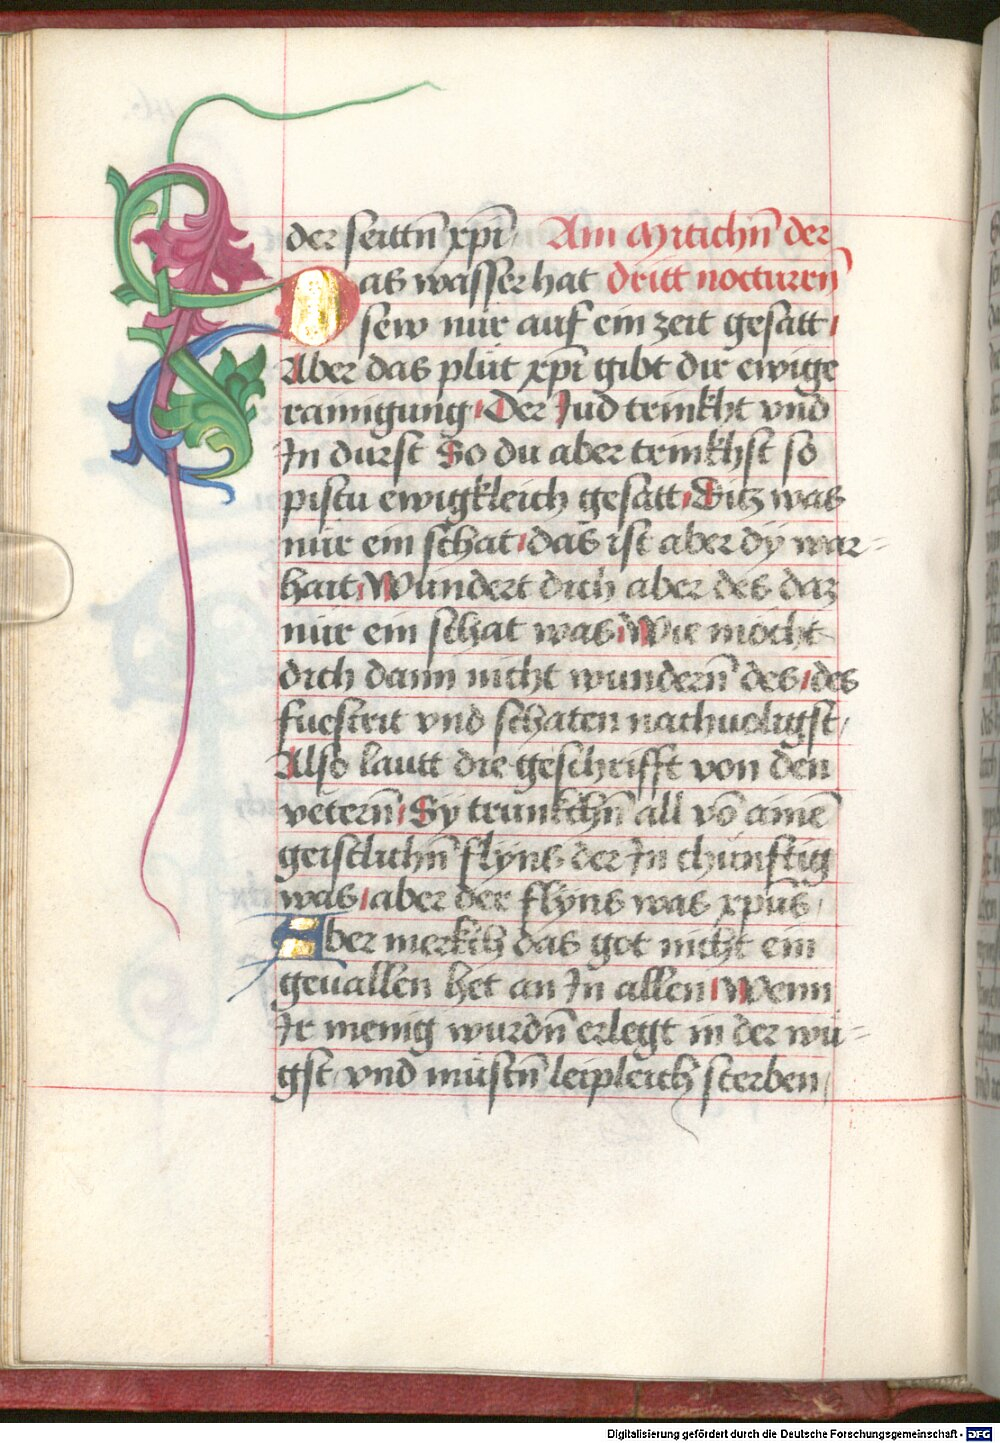 der seittn̄ xp̄i Am Mitichn̄ der
Das wasser hat dritt nocturen̄
sew nur auf ein zeit gesatt
Aber das plüt xp̄i gibt dir ewige
rainigung Der Jud trinkht vnd
In durst So du aber trinkhst so
pistu ewigkleich gesatt Ditz was
nür ein schat das ist aber dÿ war=
hait Wundert dich aber des daz
nür ein schat was Wie möcht
dich dann nicht wundern̄ des des
fuestrit vnd schaten nachuoligst
Also lautt die geschrifft von den
vetern̄ Sÿ trunkchn̄ all vō ainē
geistlichn̄ flÿns der In chünftig
was aber der flÿns was xp̄us
Aber merkch das got nicht ein
geuallen het an In allen Wenn
Ir menig wurdn̄ erlegt in der wü=
gst vnd müstn̄ leipleich sterben
Digitalisierung gefördert durch die Deutsche Forschungsgemeinschaft - DFG